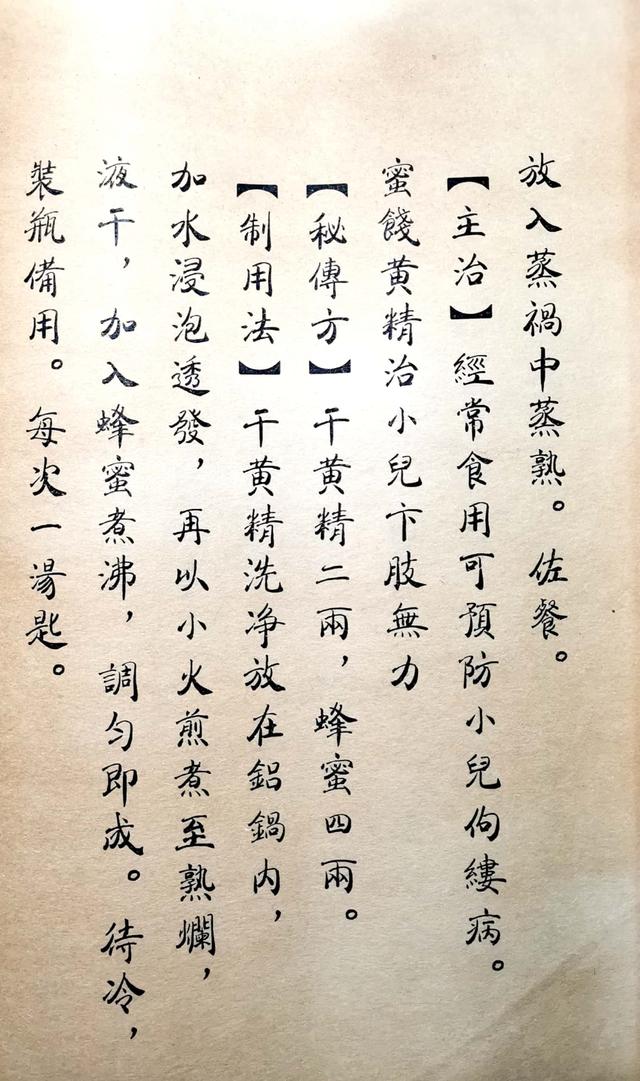 放入蒸禍中蒸熟。佐餐。
【主治】經常食用可預防小兒佝縷病。
蜜餞黄精治小兒卞肢無力
【秘傳方】干黄精二兩，蜂蜜四兩。
【制用法】干黄精洗净放在鋁鍋内，
加水浸泡透發，再以小火煎煮至熟爛，
液干，加入蜂蜜煮沸，調匀即成。待冷，
裝瓶備用。每次一湯匙。